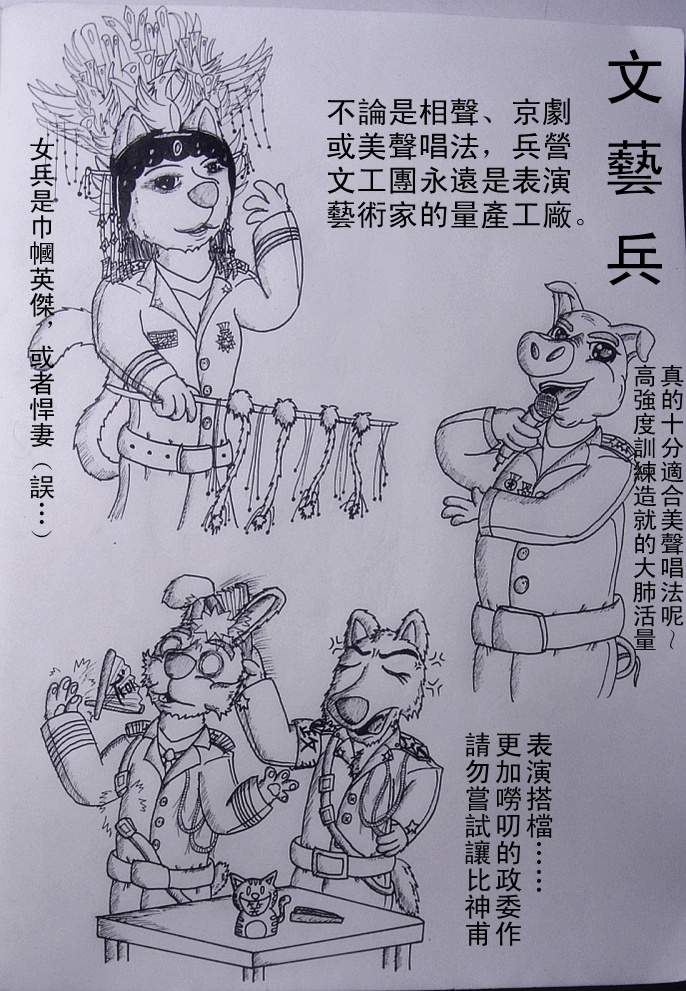 文藝兵
不論是相聲、京劇
或美聲唱法，兵營
文工團永遠是表演
藝術家的量產工廠。
女兵是巾幗英傑，或者悍妻（誤…）
真的十分適合美聲唱法呢～
高強度訓練造就的大肺活量
表演搭檔……
更加嘮叨的政委作
請勿嘗試讓比神甫